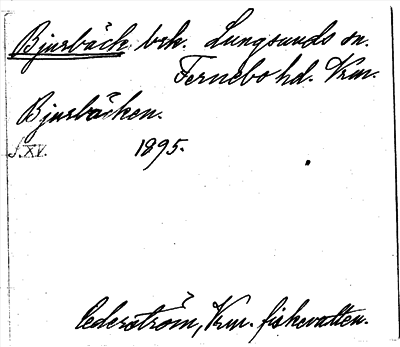 Bjurbäck brk. Lungsunds sn.
Fernebo hd. Vrm.
Bjurbäcken.
S. XV. 1895.
Cederström, Vrm. fiskevatten.